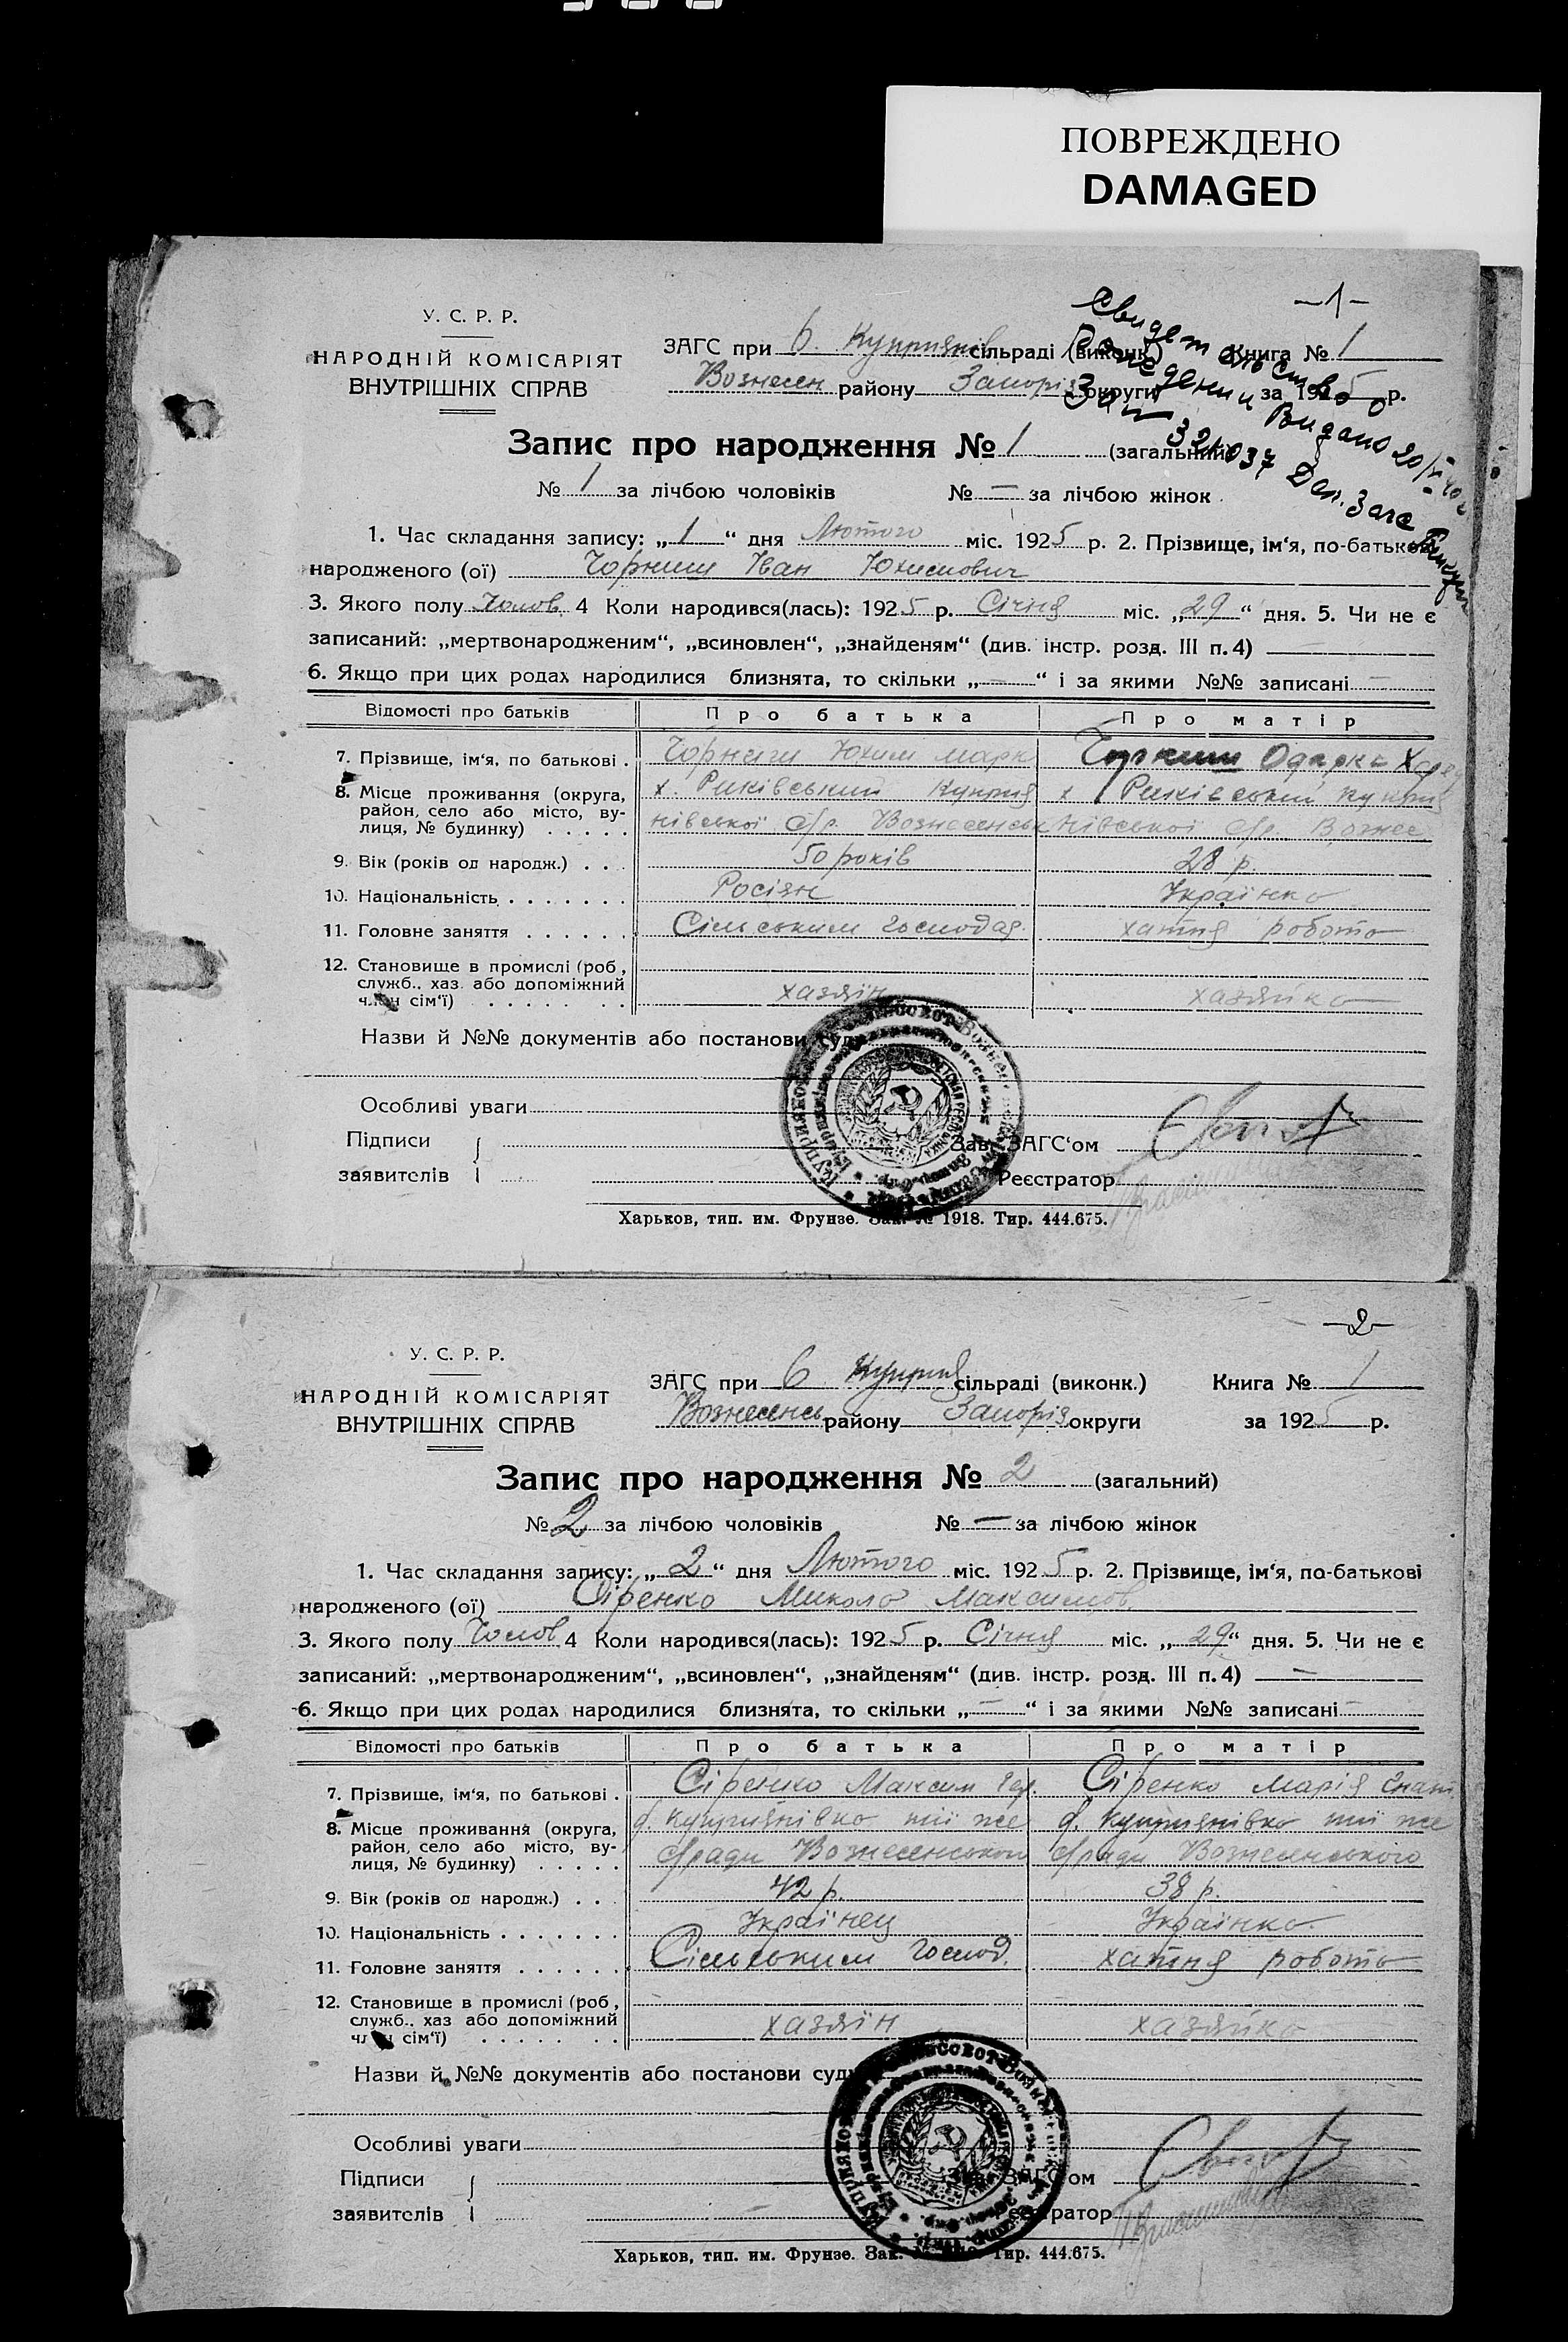 ПОВРЕЖДЕНО
DAMAGED
—1—
У. С. Р. Р.
НАРОДНІЙ КОМІСАРІЯТ
ВНУТРІШНІХ СПРАВ
ЗАГС при б. Куприянів сільраді (виконк.) Книга № 1
Вознесен району Запоріз округи за 1925 р.
Свидетельство
Рождении Видано 20/
321037 Зав. Загс
Запис про народження № 1 (загальний)
№ 1 за лічбою чоловіків № — за лічбою жінок
1. Час складання запису: „1“ дня Лютого міс. 1925 р. 2. Прізвище, ім‘я, по-батькові
народженого (ої) Чорниш Іван Юхимович
3. Якого полу Чолов 4 Коли народився(лась): 1925 р. Січня міс. „29“ дня. 5. Чи не є
записаний: „мертвонародженим“, „всиновлен“, „знайденям“ (див. інстр. розд. III п. 4) —
6. Якщо при цих родах народилися близнята, то скільки „—“ і за якими №№ записані —
Відомості про батьків Про батька Про матір
7. Прізвище, ім‘я, по батькові . Чорниш Юхим Марк Чорниш Одарка
8. Місце проживання (округа, х. Риківський Куприя х Риківський Куприя
район, село або місто, ву-
лиця, № будинку) . . . . . нівської с/р. Вознесенськ нівської с/р. Вознес
9. Вік (років од народж.) . . . 50 років 28 р.
10. Національність . . . . . . . Росіян Українка
11. Головне заняття . . . . . . Сільським господар. хатня робота
12. Становище в промислі (роб.,
служб., хаз. або допоміжний
член сім‘ї) . . . . . . . . хазяїн хазяйка
Назви й №№ документів або постанови суду
Особливі уваги
Підписи Зав. ЗАГС‘ом
заявителів Реєстратор
Харьков, тип. им. Фрунзе. Зак. № 1918. Тир. 444.675.
—2—
У. С. Р. Р.
НАРОДНІЙ КОМІСАРІЯТ
ВНУТРІШНІХ СПРАВ
ЗАГС при б Куприя сільраді (виконк.) Книга № 1
Вознесенсь району Запоріз округи за 1925 р.
Запис про народження № 2 (загальний)
№ 2 за лічбою чоловіків № — за лічбою жінок
1. Час складання запису: „2“ дня Лютого міс. 1925 р. 2. Прізвище, ім‘я, по-батькові
народженого (ої) Сіренко Микола Максимов.
3. Якого полу Чолов 4 Коли народився(лась): 1925 р. Січня міс. „29“ дня. 5. Чи не є
записаний: „мертвонародженим“, „всиновлен“, „знайденям“ (див. інстр. розд. III п. 4) —
6. Якщо при цих родах народилися близнята, то скільки „—“ і за якими №№ записані —
Відомості про батьків Про батька Про матір
7. Прізвище, ім‘я, по батькові . Сіренко Максим Сіренко Марія
8. Місце проживання (округа, б. Куприянівка тії же б. Куприянівка тії же
район, село або місто, ву-
лиця, № будинку) . . . . . с/ради Вознесенського с/ради Вознесенського
9. Вік (років од народж.) . . . 42 р. 38 р.
10. Національність . . . . . . . Українец Українка
11. Головне заняття . . . . . . Сільським Господ. хатня робота
12. Становище в промислі (роб.,
служб., хаз або допоміжний
член сім‘ї) . . . . . . . . хазяїн хазяйка
Назви й №№ документів або постанови суду
Особливі уваги
Підписи Зав. ЗАГС‘ом
заявителів Реєстратор
Харьков, тип. им. Фрунзе. Зак. № 1918. Тир. 444.675.